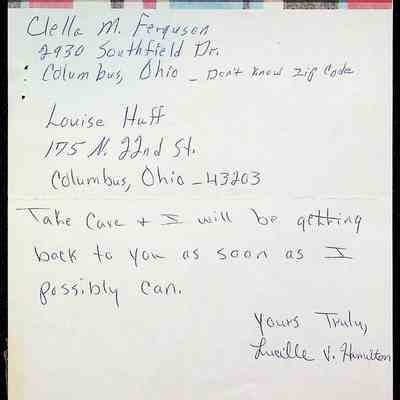 Clella M. Ferguson
2930 Southfield Dr.
Columbus, Ohio - Don't know zip code
Louise Huff
175 N. 22nd St.
Columbus, Ohio - 43203
Take Care + I will be getting
back to you as soon as I
possibly can.
Yours Truly,
Lucille V. Hamilton